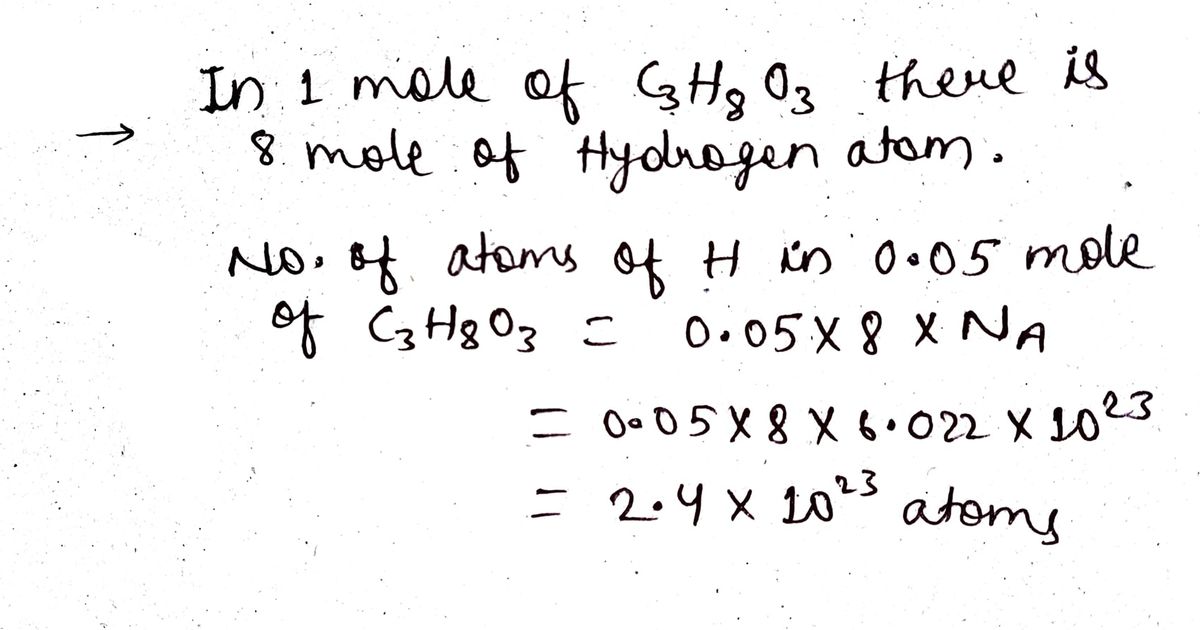 In 1 mole of C₃H₈O₃ there is
→ 8 mole of Hydrogen atom.
No. of atoms of H in 0.05 mole
of C₃H₈O₃ = 0.05 X 8 X NA
= 0.05 X 8 X 6.022 X 10²³
= 2.4 X 10²³ atoms